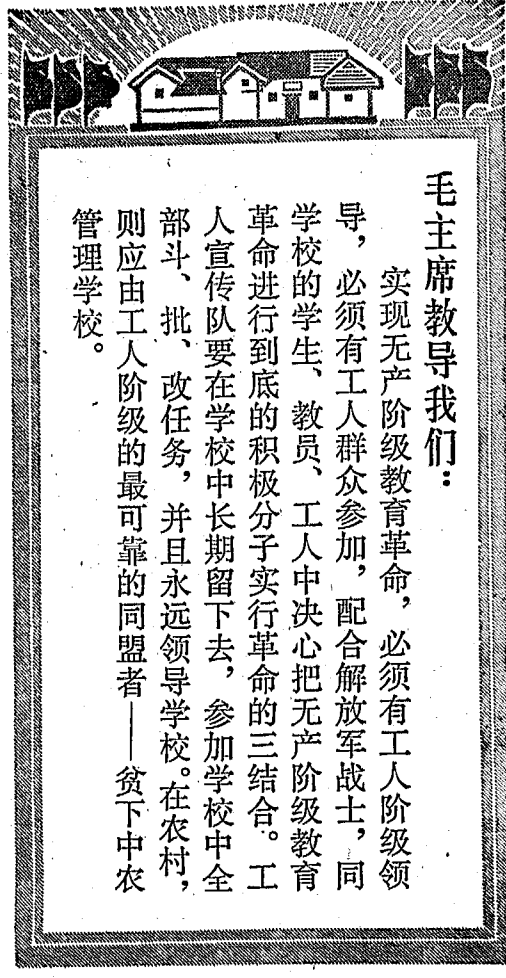 毛主席教导我们：
实现无产阶级教育革命，必须有工人阶级领
导，必须有工人群众参加，配合解放军战士，同
学校的学生、教员、工人中决心把无产阶级教育
革命进行到底的积极分子实行革命的三结合。工
人宣传队要在学校中长期留下去，参加学校中全
部斗、批、改任务，并且永远领导学校。在农村，
则应由工人阶级的最可靠的同盟者——贫下中农
管理学校。